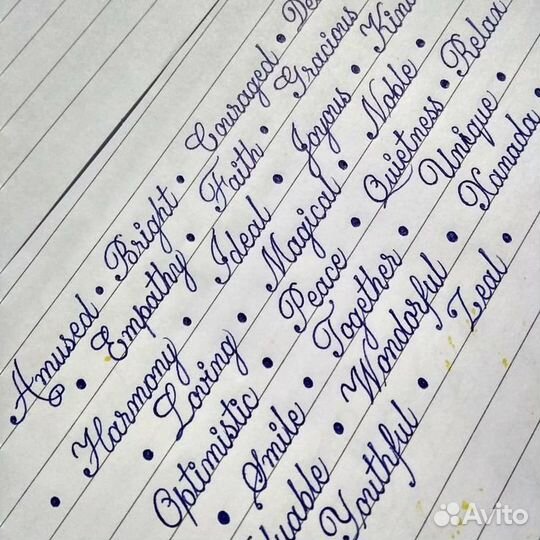 Amused • Bright • Couraged •
• Empathy • Faith • Gracious
• Harmony • Ideal • Joyous •
Loving • Magical • Noble •
Optimistic • Peace • Quietness • Relax
• Smile • Together • Unique •
Wondorful • Xanada •
Youthful • Zeal •
Avito